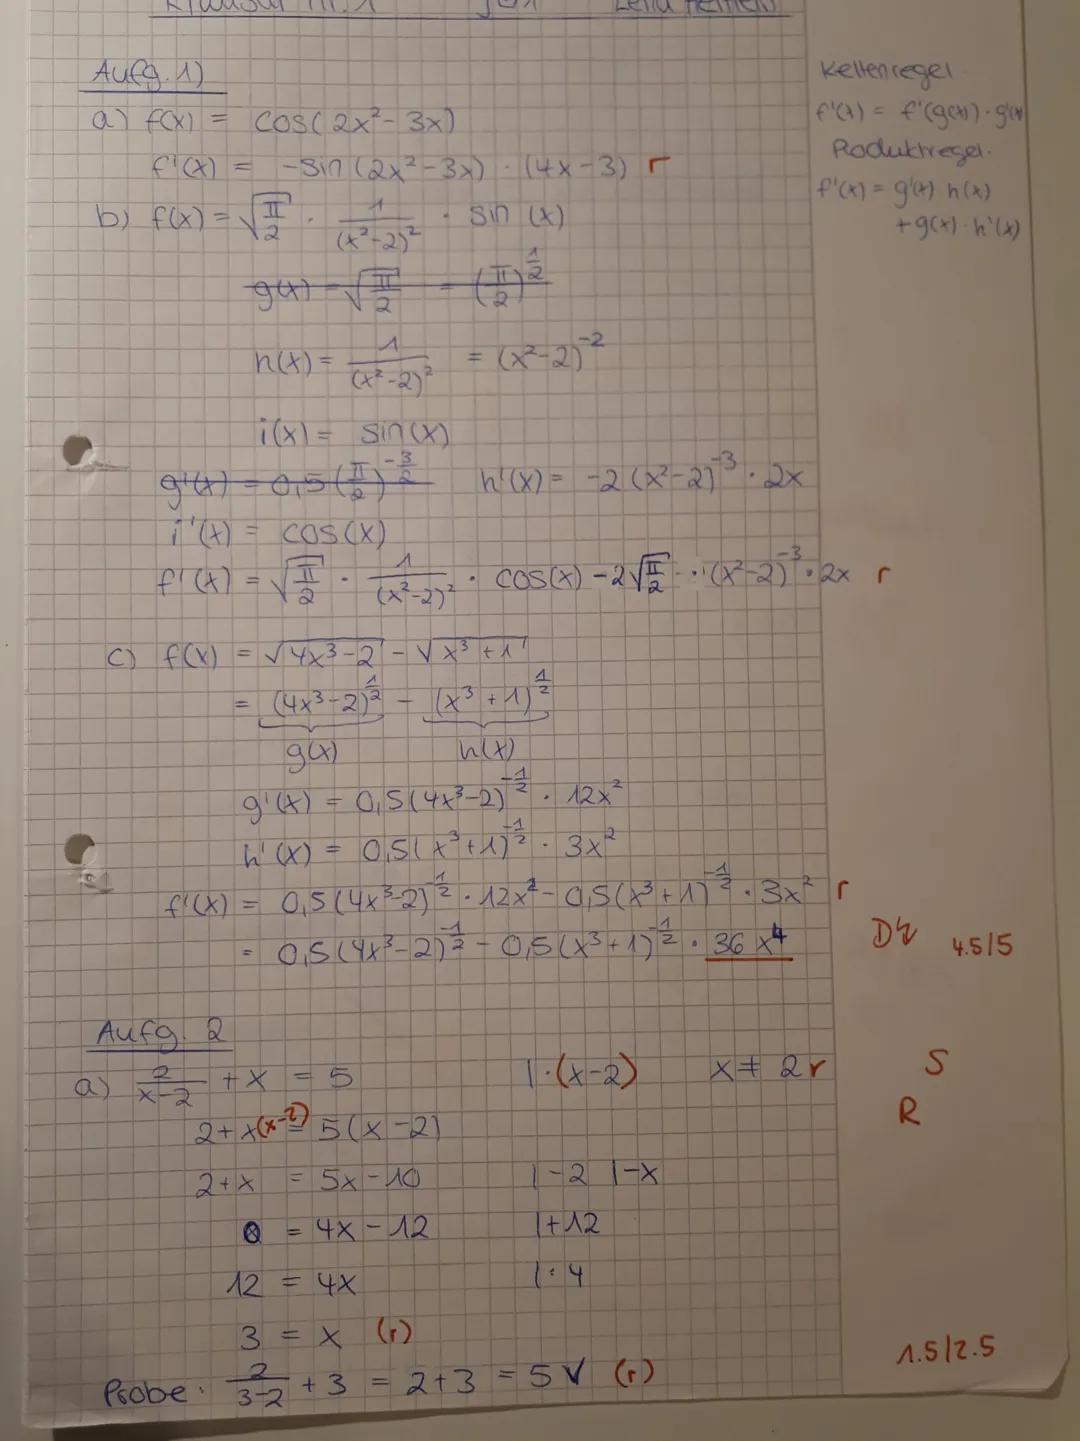 Klausur Nr. 1
Aufg. 1)
a) f(x) = cos(2x² - 3x)
f'(x) = -sin(2x² - 3x) · (4x - 3) r
b) f(x) = √(π/2) · 1/(x²-2)² · sin (x)
g(x) = √(π/2) = (π/2)^(1/2)
h(x) = 1/(x²-2)² = (x²-2)^(-2)
i(x) = sin(x)
g'(x) = 0,5(π/2)^(-3/2) h'(x) = -2(x²-2)^(-3) · 2x
i'(x) = cos(x)
f'(x) = √(π/2) · 1/(x²-2)² · cos(x) - 2√(π/2) · · (x²-2)^(-3) · 2x r
c) f(x) = √(4x³-2) - √(x³+1)
= (4x³-2)^(1/2) - (x³+1)^(1/2)
g(x) h(x)
g'(x) = 0,5(4x³-2)^(-1/2) · 12x²
h'(x) = 0,5(x³+1)^(-1/2) · 3x²
f'(x) = 0,5(4x³-2)^(-1/2) · 12x² - 0,5(x³+1)^(-1/2) · 3x² r
= 0,5(4x³-2)^(-1/2) - 0,5(x³+1)^(-1/2) · 36x⁴
4.5/5
Kettenregel
f'(x) = f'(g(x)) · g'(x)
Produktregel.
f'(x) = g'(x) h(x)
+ g(x) · h'(x)
Aufg. 2
a) 2/(x-2) + x = 5 | · (x-2) x ≠ 2 r S
2 + x(x-2) = 5(x-2) R
2+x = 5x - 10 | -2 | -x
0 = 4x - 12 | +12
12 = 4x | : 4
3 = x (r)
Probe: 2/(3-2) + 3 = 2+3 = 5 ✓ (r) 1.5/2.5